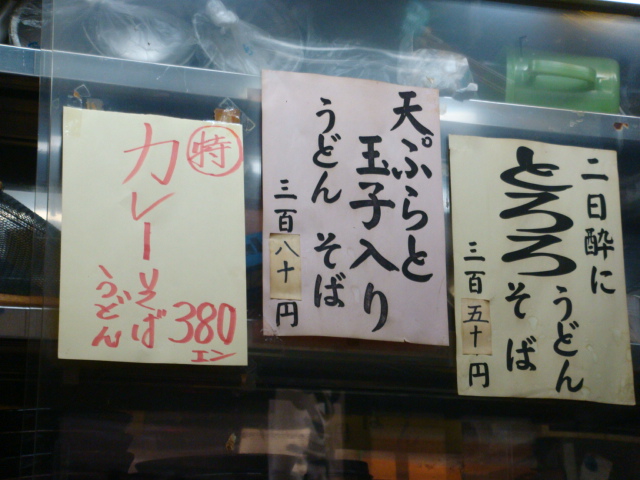 二日酔に
とろろうどん
そば
三百五十円
天ぷらと
玉子入り
うどん そば
三百八十円
特
カレーそば
うどん
380
エン